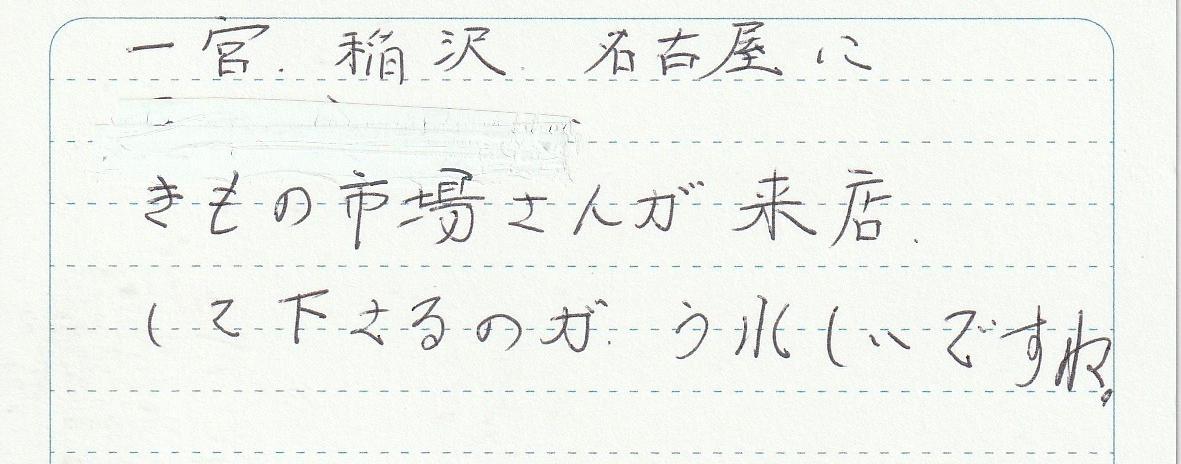 一宮. 稲沢. 名古屋に
きもの市場さんが来店.
して下さるのが. うれしいですね。